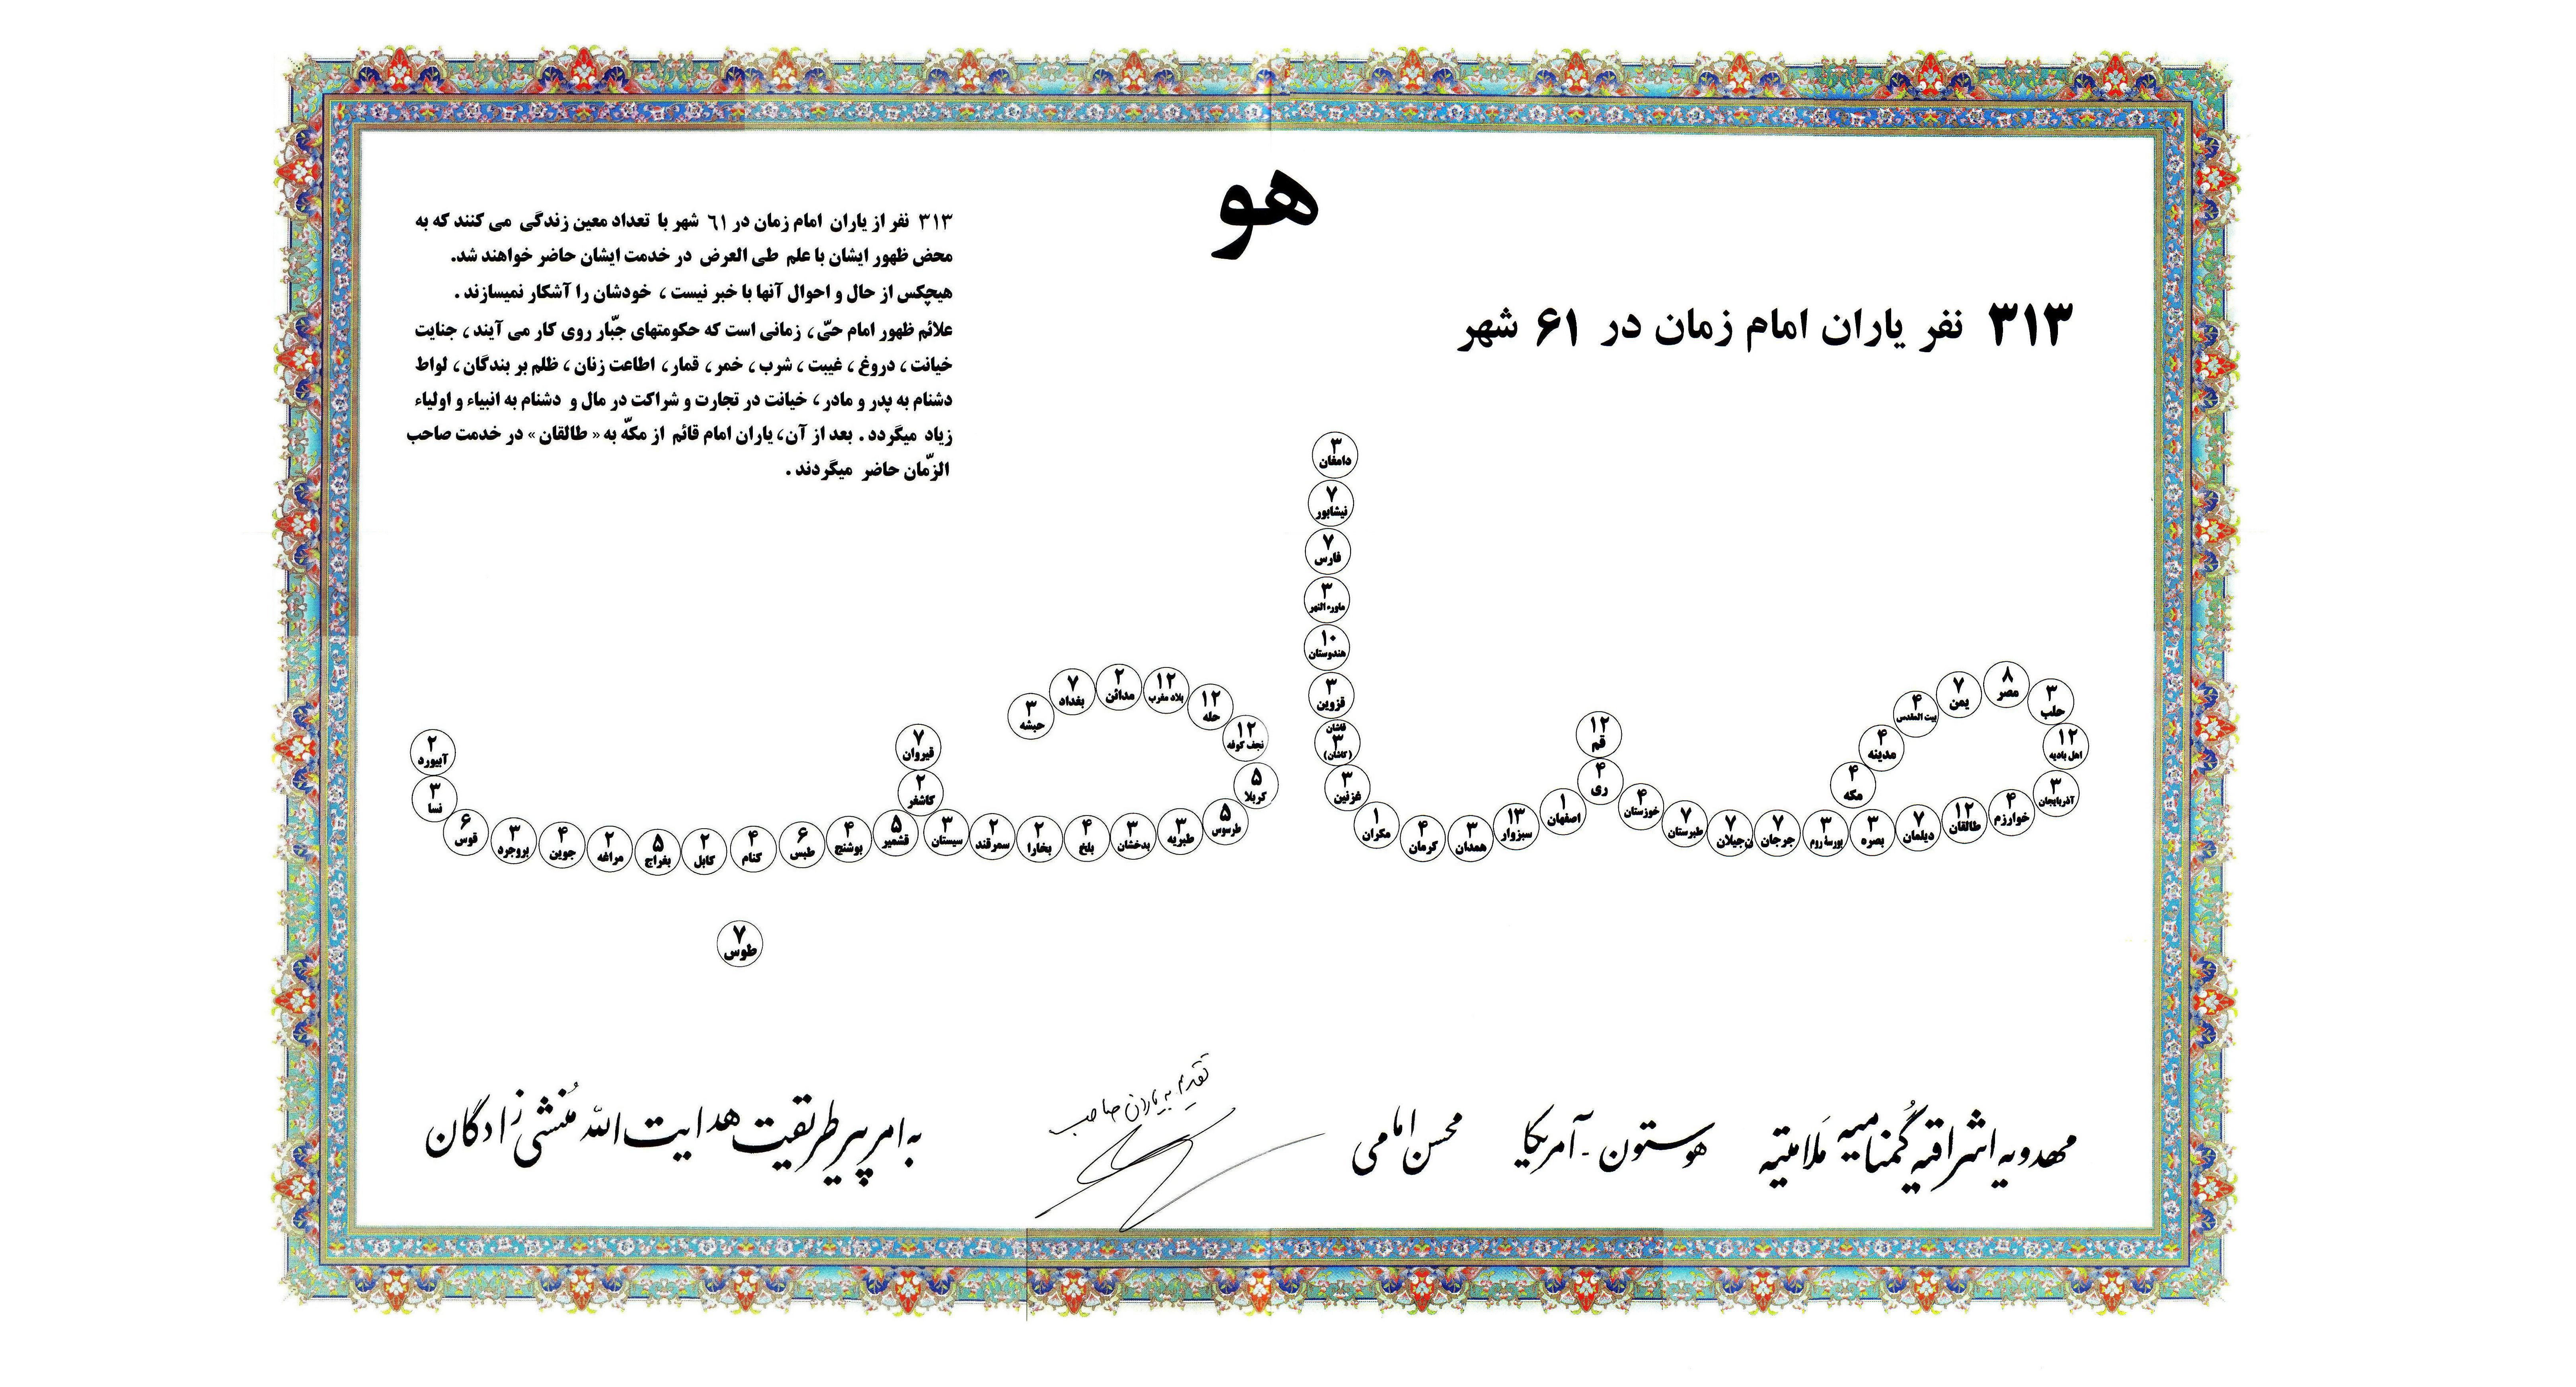 هو
۳۱۳ نفر یاران امام زمان در ۶۱ شهر
۳۱۳ نفر از یاران امام زمان در ٦۱ شهر با تعداد معین زندگی می کنند که به
محض ظهور ایشان با علم طی العرض در خدمت ایشان حاضر خواهند شد.
هیچکس از حال و احوال آنها با خبر نیست ، خودشان را آشکار نمیسازند .
علائم ظهور امام حیّ ، زمانی است که حکومتهای جبّار روی کار می آیند ، جنایت
خیانت ، دروغ ، غیبت ، شرب ، خمر ، قمار ، اطاعت زنان ، ظلم بر بندگان ، لواط
دشنام به پدر و مادر ، خیانت در تجارت و شراکت در مال و دشنام به انبیاء و اولیاء
زیاد میگردد . بعد از آن، یاران امام قائم از مکّه به « طالقان » در خدمت صاحب
الزّمان حاضر میگردند .
۴ مکه
۴ مدینه
۴ بیت المقدس
۷ یمن
۸ مصر
۳ حلب
۱۲ اهل بادیه
۳ آذربایجان
۴ خوارزم
۱۲ طالقان
۷ دیلمان
۳ بصره
۳ بورسا روم
۷ جرجان
۷ جیلان
۷ طبرستان
۴ خوزستان
۴ ری
۱۲ قم
۱ اصفهان
۱۳ سبزوار
۳ همدان
۴ کرمان
۱ مکران
۳ غزنین
قاشان ۳ (کاشان)
۳ قزوین
۱۰ هندوستان
۳ ماوره النهر
۷ فارس
۷ نیشابور
۳ دامغان
۳ حبشه
۷ بغداد
۲ مدائن
۱۲ بلاد مغرب
۱۲ حله
۱۲ نجف کوفه
۵ کربلا
۵ طرسوس
۳ طبریه
۳ بدخشان
۴ بلخ
۲ بخارا
۲ سمرقند
۳ سیستان
۲ کاشغر
۷ قیروان
۵ قشمیر
۴ بوشنج
۶ طبس
۴ کنام
۲ کابل
۵ یغراج
۲ مراغه
۴ جوین
۳ بروجرد
۶ قوس
۳ نسا
۲ آبیورد
۷ طوس
مهدویه اشراقیه گُمنامیه مَلامتیه
هوستون - آمریکا
محسن امامی
تقدیم به یاران صاحب
به امر پیر طریقت هدایت الله مُنشی زادگان